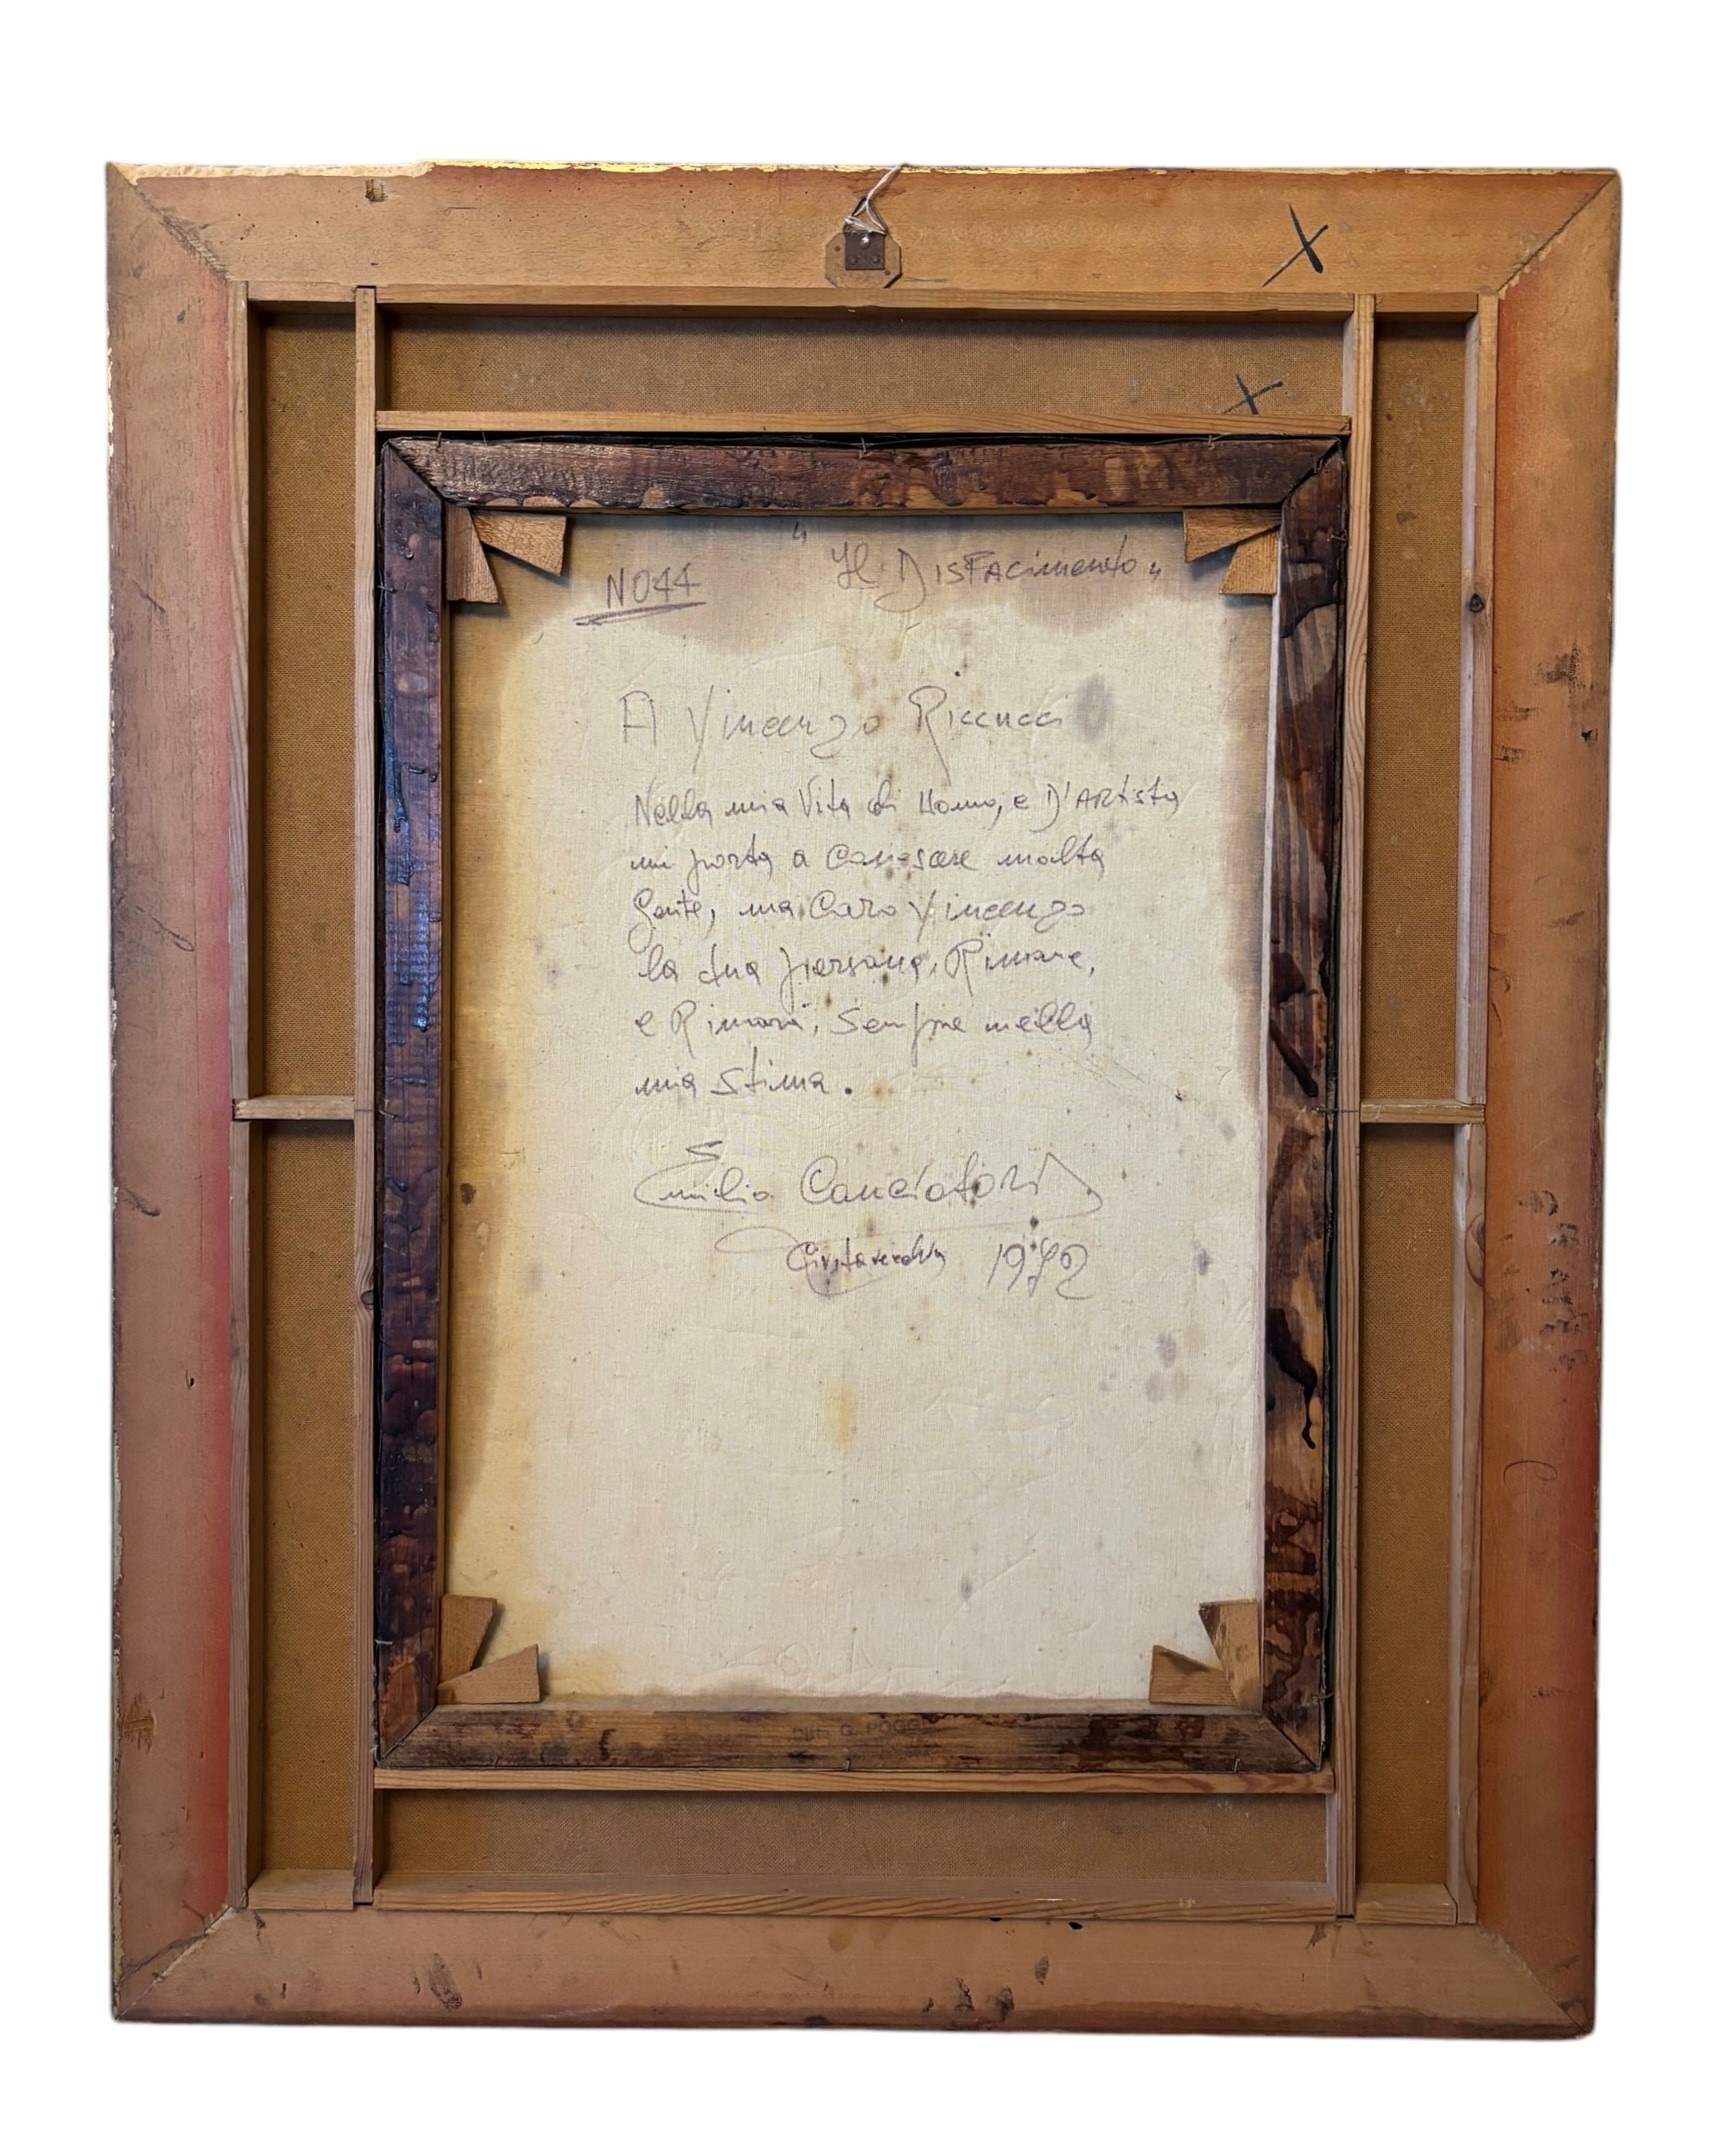 X
X
N044 "Il DISFAcimento"
A Vincenzo Riccucci
Nella mia Vita di Uomo, e D'ARtista
mi porta a Conoscere molta
Gente, ma Caro Vincenzo
la tua persona, Rimane,
e Rimarà, Sempre nella
mia Stima.
Emilio Canciatori
Civitavecchia 1972
Ditta G. POGGI